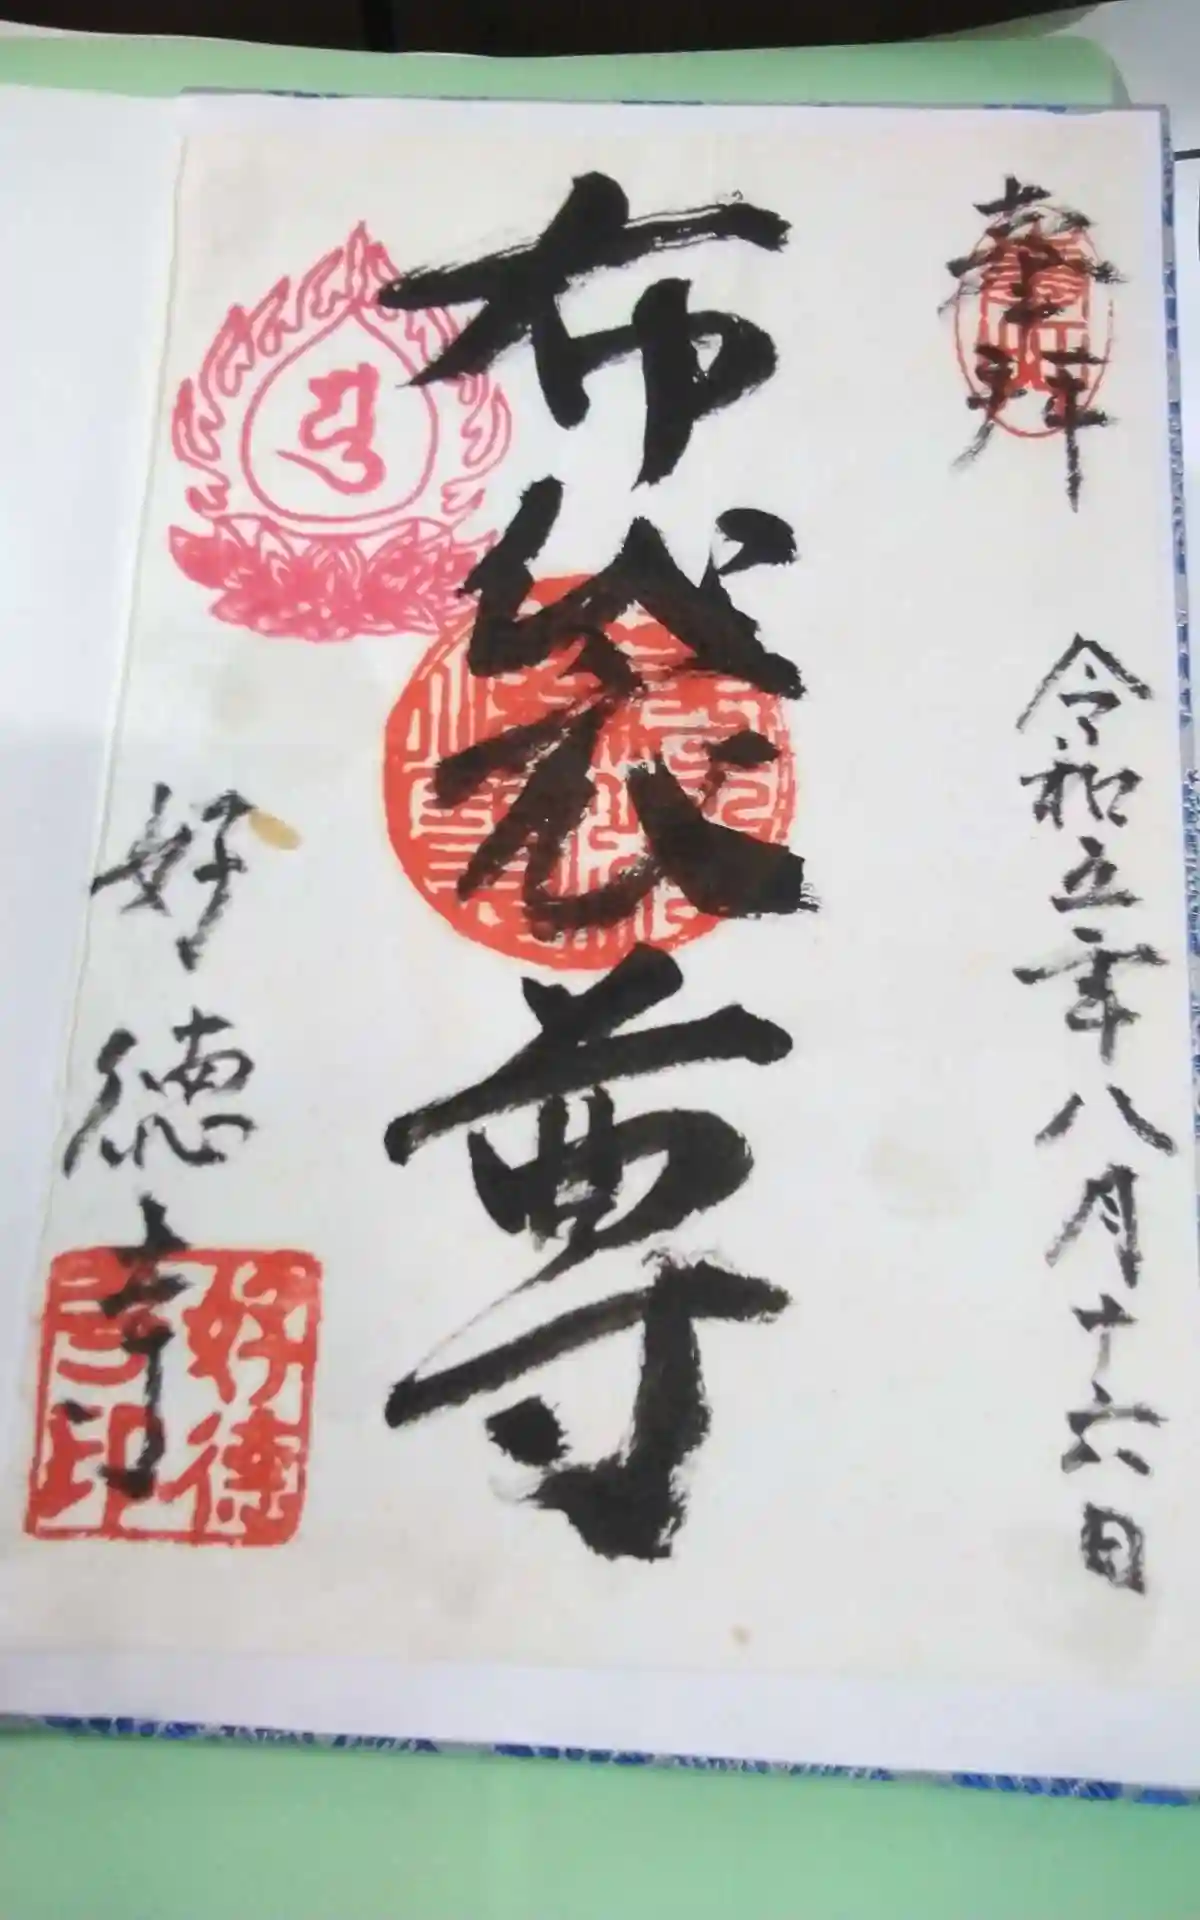 奉拝
令和五年八月十六日
布袋尊
好徳寺
好徳
寺印